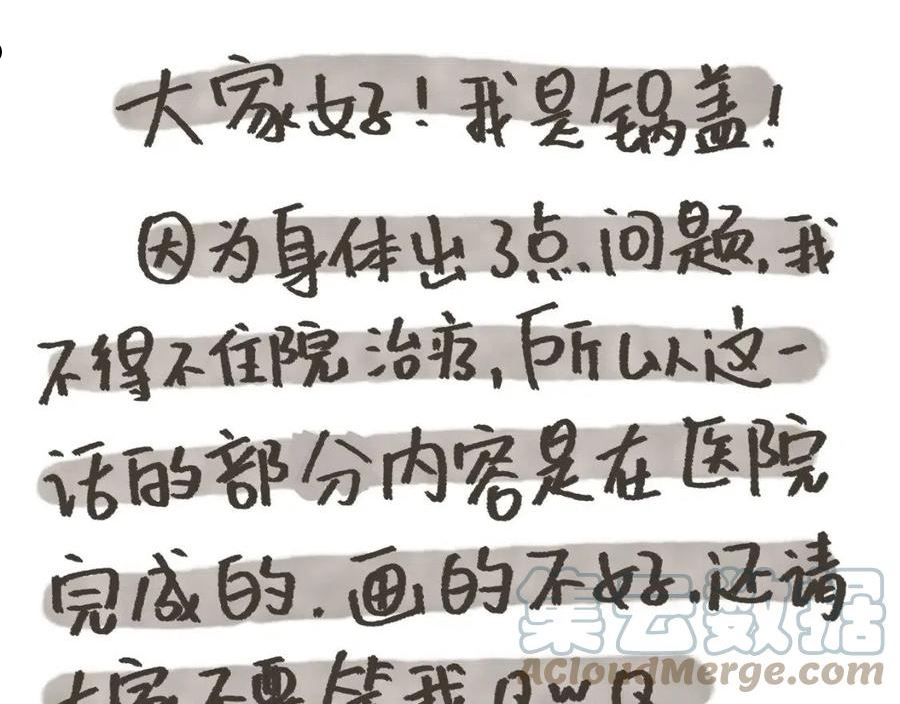 大家好！我是锅盖！
因为身体出了点问题，我
不得不住院治疗，所以这一
话的部分内容是在医院
完成的．画的不好，还请
大家不要笑我 QwQ
集云数据
ACloudMerge.com